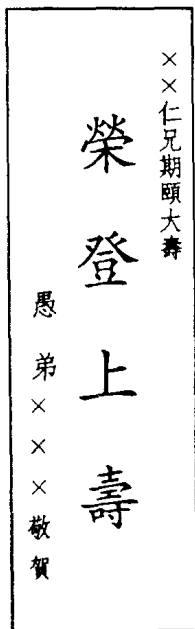 ××仁兄期頤大壽
榮登上壽
愚弟×××敬賀